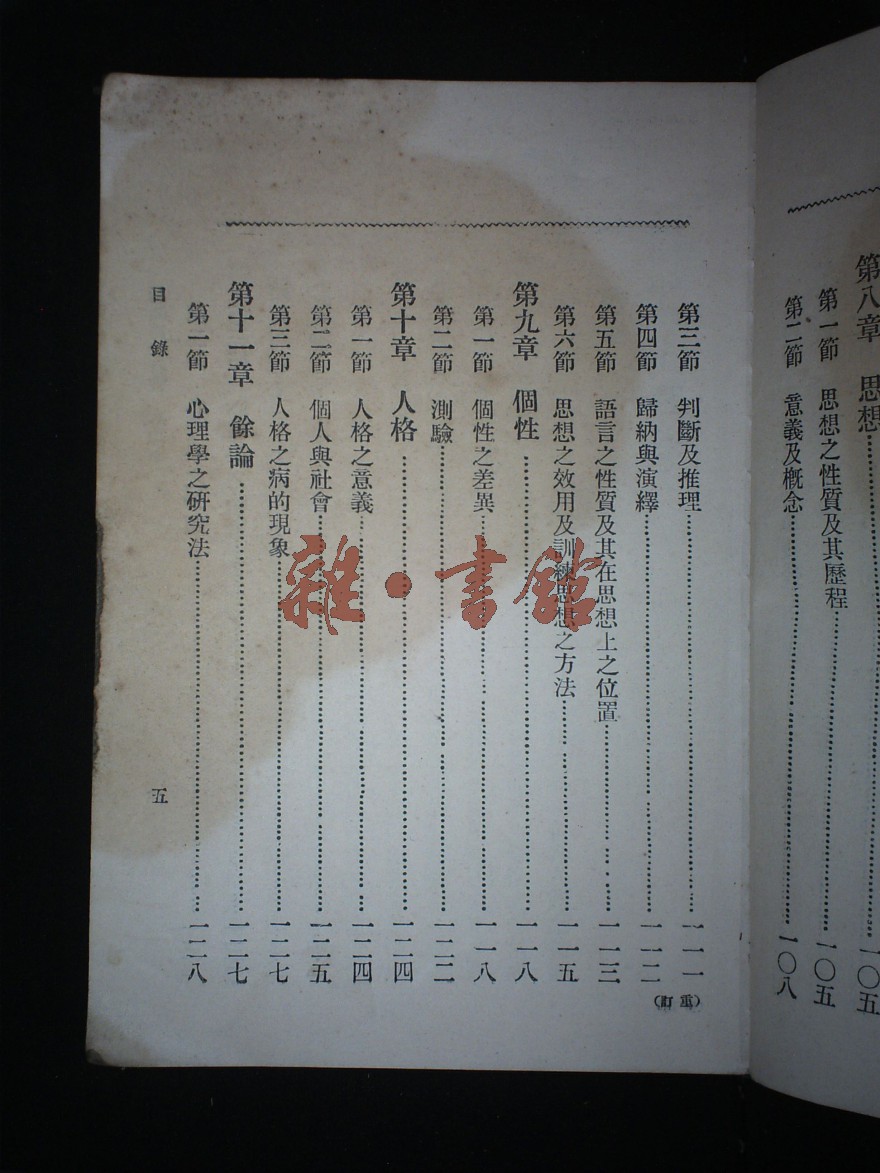 第八章　思想……一〇五
第一節　思想之性質及其歷程……一〇五
第二節　意義及概念……一〇八
第三節　判斷及推理……一一一
第四節　歸納與演繹……一一二
第五節　語言之性質及其在思想上之位置……一一三
第六節　思想之效用及訓練思想之方法……一一五
第九章　個性……一一八
第一節　個性之差異……一一八
第二節　測驗……一二二
第十章　人格……一二四
第一節　人格之意義……一二四
第二節　個人與社會……一二五
第三節　人格之病的現象……一二七
第十一章　餘論……一二七
第一節　心理學之研究法……一二八
目錄
五
（重訂）
雜·書館